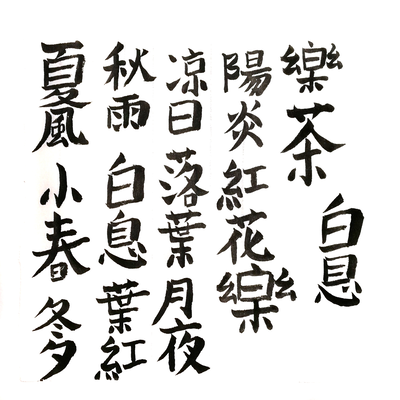 樂茶 白息
陽炎 紅花 樂
涼日 落葉 月夜
秋雨 白息 葉紅
夏風 小春 冬夕